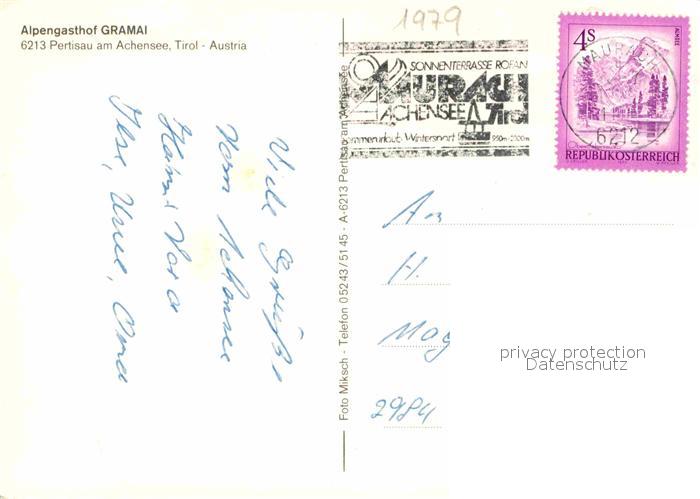 Alpengasthof GRAMAI
6213 Pertisau am Achensee, Tirol - Austria
1979
SONNENTERRASSE ROFAN
MAURACH
ACHENSEE Tirol
Sommerurlaub-Wintersport 950m-2000m
4S
MAURACH
6212
REPUBLIK ÖSTERREICH
Viele Grüße
vom Achensee
Foto Miksch - Telefon 05243/5145 - A-6213 Pertisau am Achensee
An
H.
May
2984
privacy protection
Datenschutz